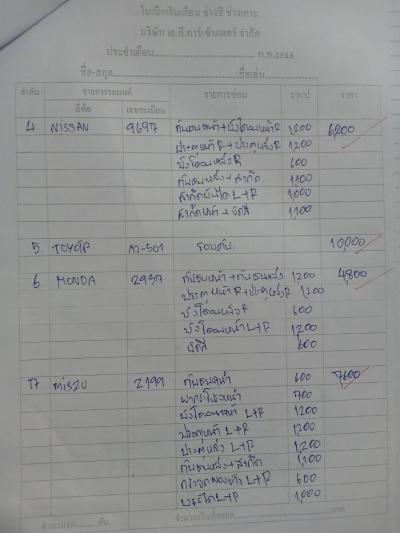 ใบเบิกเงินเดือน ช่างสี ช่างเคาะ
บริษัท เอ.ที.คาร์เซ็นเตอร์ จำกัด
ประจำเดือน.................... พ.ศ.2563
ชื่อ-สกุล....................ชื่อเล่น....................
ลำดับ รายการรถยนต์ รายการซ่อม ราคา
ยี่ห้อ เลขทะเบียน
4 NISSAN 9697 กันชนหน้า+บังโคลนหน้าR 1,200 6,200
ประตูหน้าR+ประตูหลังR 1,200
บังโคลนหลังR 600
กันชนหลัง+สเกิ๊ต 1,100
สเกิ๊ตบันได L+R 1,000
สเกิ๊ตหน้า+ขัดสี 1,100
5 TOYOTA 501 รอบคัน 10,000
6 HONDA 2957 กันชนหน้า+กันชนหลัง 1,200 4,800
ประตูหน้าR+ประตูหลังR 1,200
บังโคลนหลังR 600
บังโคลนหน้า L+R 1,200
ขัดสี 600
7 MISZU 2199 กันชนหน้า 600 7,600
ฝากระโปรงหน้า 700
บังโคลนหน้า L+R 1,200
ประตูหน้า L+R 1,200
ประตูหลัง L+R 1,200
กันชนหลัง+สเกิ๊ต 1,100
กระจกมองข้าง L+R 600
บันได L+R 1,000
จำนวนรถ..........คัน จำนวนเงินทั้งหมด....................บาท